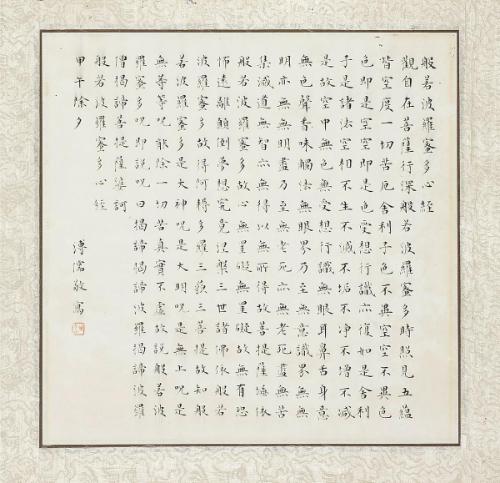 般若波羅蜜多心經
觀自在菩薩行深般若波羅蜜多時照見五蘊
皆空度一切苦厄舍利子色不異空空不異色
色即是空空即是色受想行識亦復如是舍利
子是諸法空相不生不滅不垢不淨不增不減
是故空中無色無受想行識無眼耳鼻舌身意
無色聲香味觸法無眼界乃至無意識界無無
明亦無無明盡乃至無老死亦無老死盡無苦
集滅道無智亦無得以無所得故菩提薩埵依
般若波羅蜜多故心無罣礙無罣礙故無有恐
怖遠離顛倒夢想究竟涅槃三世諸佛依般若
波羅蜜多故得阿耨多羅三藐三菩提故知般
若波羅蜜多是大神呪是大明呪是無上呪是
無等等呪能除一切苦真實不虛故說般若波
羅蜜多呪即說呪曰揭諦揭諦波羅揭諦波羅
僧揭諦菩提薩婆訶
般若波羅蜜多心經
甲午除夕
溥儒敬寫